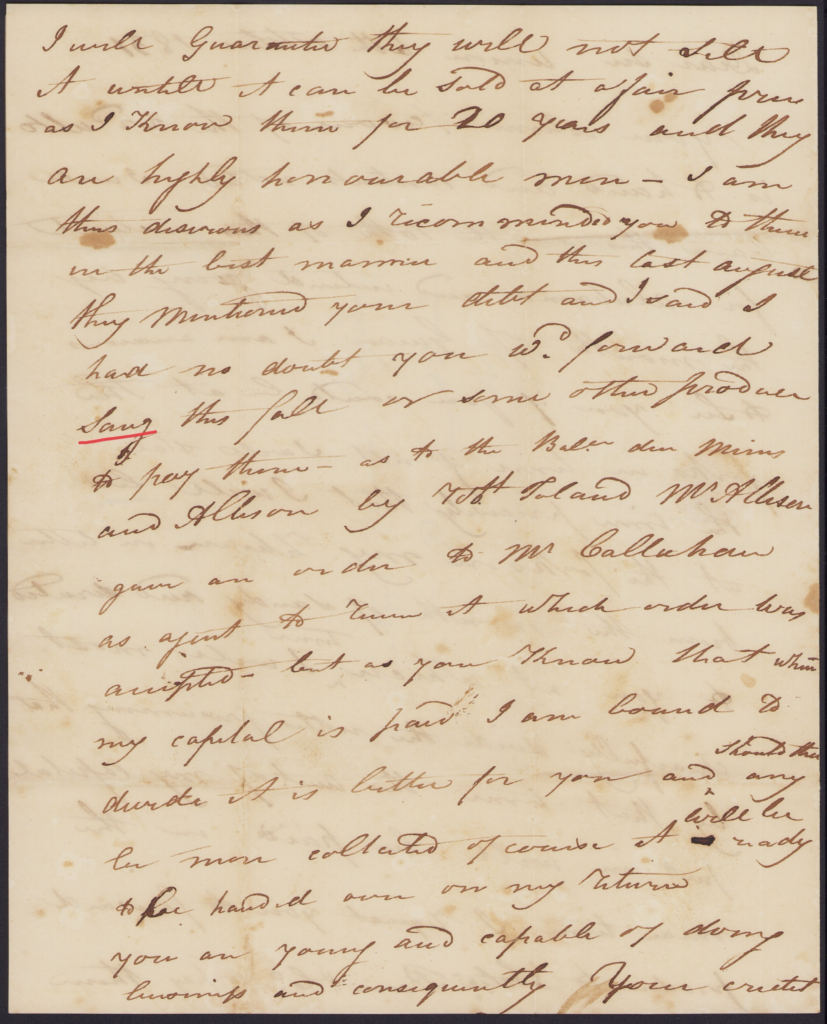 I will Guarantie they will not sell
it untill it can be sold at a fair price
as I Know them for 20 years and they
are highly honourable men – I am
thus desirous as I recommended you to them
in the best manner and this last august
they mentioned your debt and I said I
had no doubt you wd. forward
Sang this fall or some other produce
to pay them – as to the Balce. due Mims
and Allison by Robt Toland Mr Allison
gave an order to Mr Callahan
as agent to receive it which order was
accepted – but as you Know that when
my capital is paid I am bound to
should there
divide it is better for you and any
will be
be more collected of course it ready
to be handed over on my return
you are young and capable of doing
business and consequently Your credit